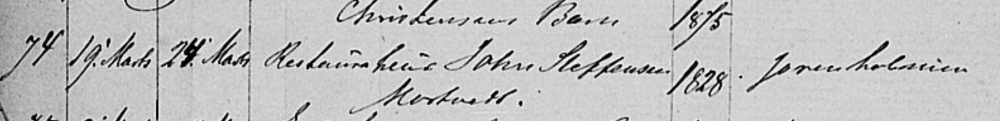 Christensens Barn 1875
74 19' Marts 24' Marts Restauratheur John Steffensen 1828.
Mostvedt.